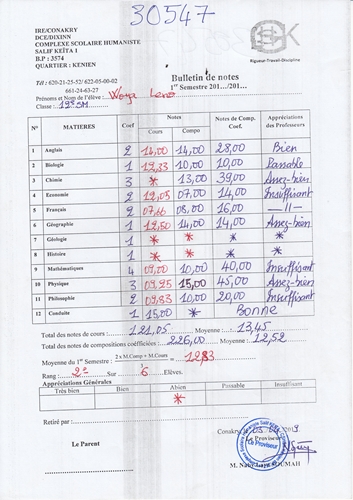 30547
IRE/CONAKRY
DCE/DIXINN
COMPLEXE SCOLAIRE HUMANISTE
SALIF KEÏTA I
B.P : 3574
QUARTIER : KENIEN
Rigueur-Travail-Discipline
Tél : 620-21-25-52/ 622-05-00-02
661-24-63-27
Bulletin de notes
1er Semestre 201…/201…
Prénoms et Nom de l'élève : Woya Leno
Classe : 12e SM
N° MATIERES Coef Notes Notes de Comp. Coef. Appréciations des Professeurs
Cours Compo
1 Anglais 2 14,00 14,00 28,00 Bien
2 Biologie 1 12,33 10,00 10,00 Passable
3 Chimie 3 * 13,00 39,00 Assez-bien
4 Economie 2 12,05 07,00 14,00 Insuffisant
5 Français 2 07,66 08,00 16,00 —//—
6 Géographie 1 12,50 14,00 14,00 Assez-bien
7 Géologie * * * *
8 Histoire * * * *
9 Mathématiques 4 09,00 10,00 40,00 Insuffisant
10 Physique 3 09,25 15,00 45,00 Assez-bien
11 Philosophie 2 09,83 10,00 20,00 Insuffisant
12 Conduite 1 15,00 * Bonne
Total des notes de cours : 121,05 Moyenne : 13,45
Total des notes de compositions coéfficiées : 226,00 Moyenne : 12,52
Moyenne du 1er Semestre : 2 x M.Comp + M.Cours = 12,83
Rang : 2e Sur 6 Elèves.
Appréciations Générales
Très bien Bien Abien Passable Insuffisant
*
Retiré par :
Conakry,
Le Parent
Proviseur
Le Proviseur
SOUMAH